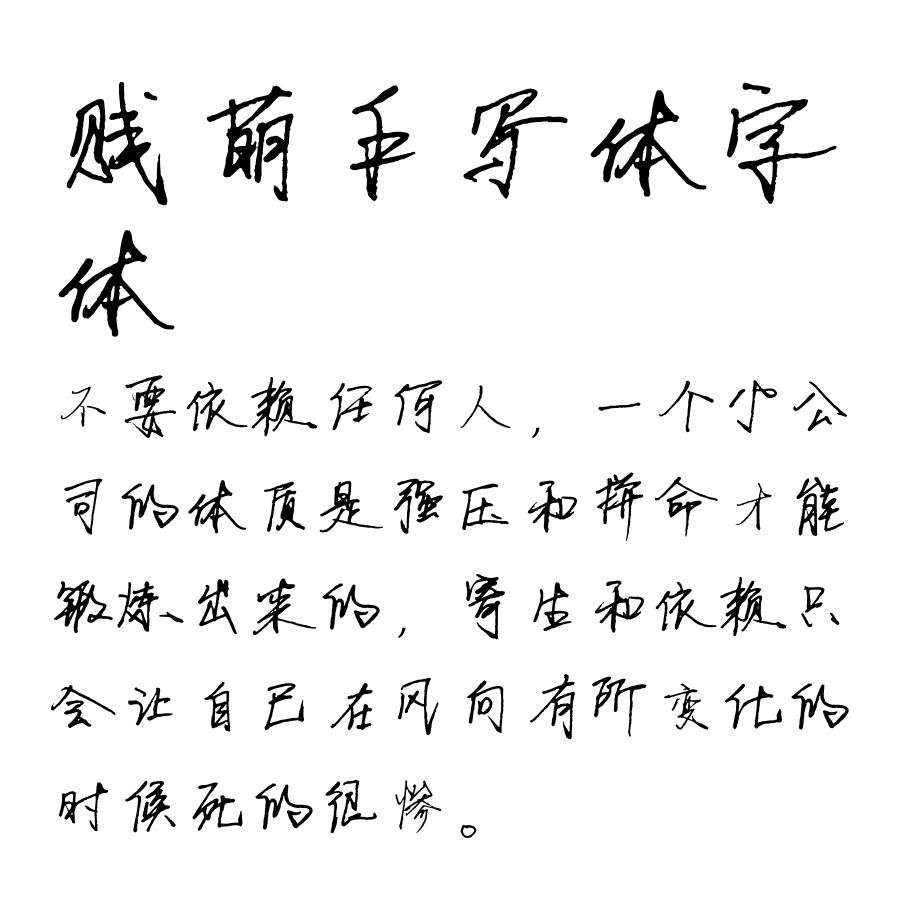 贱萌手写体字
体
不要依赖任何人，一个小公
司的体质是强压和拼命才能
锻炼出来的，寄生和依赖只
会让自己在风向有所变化的
时候死的很惨。